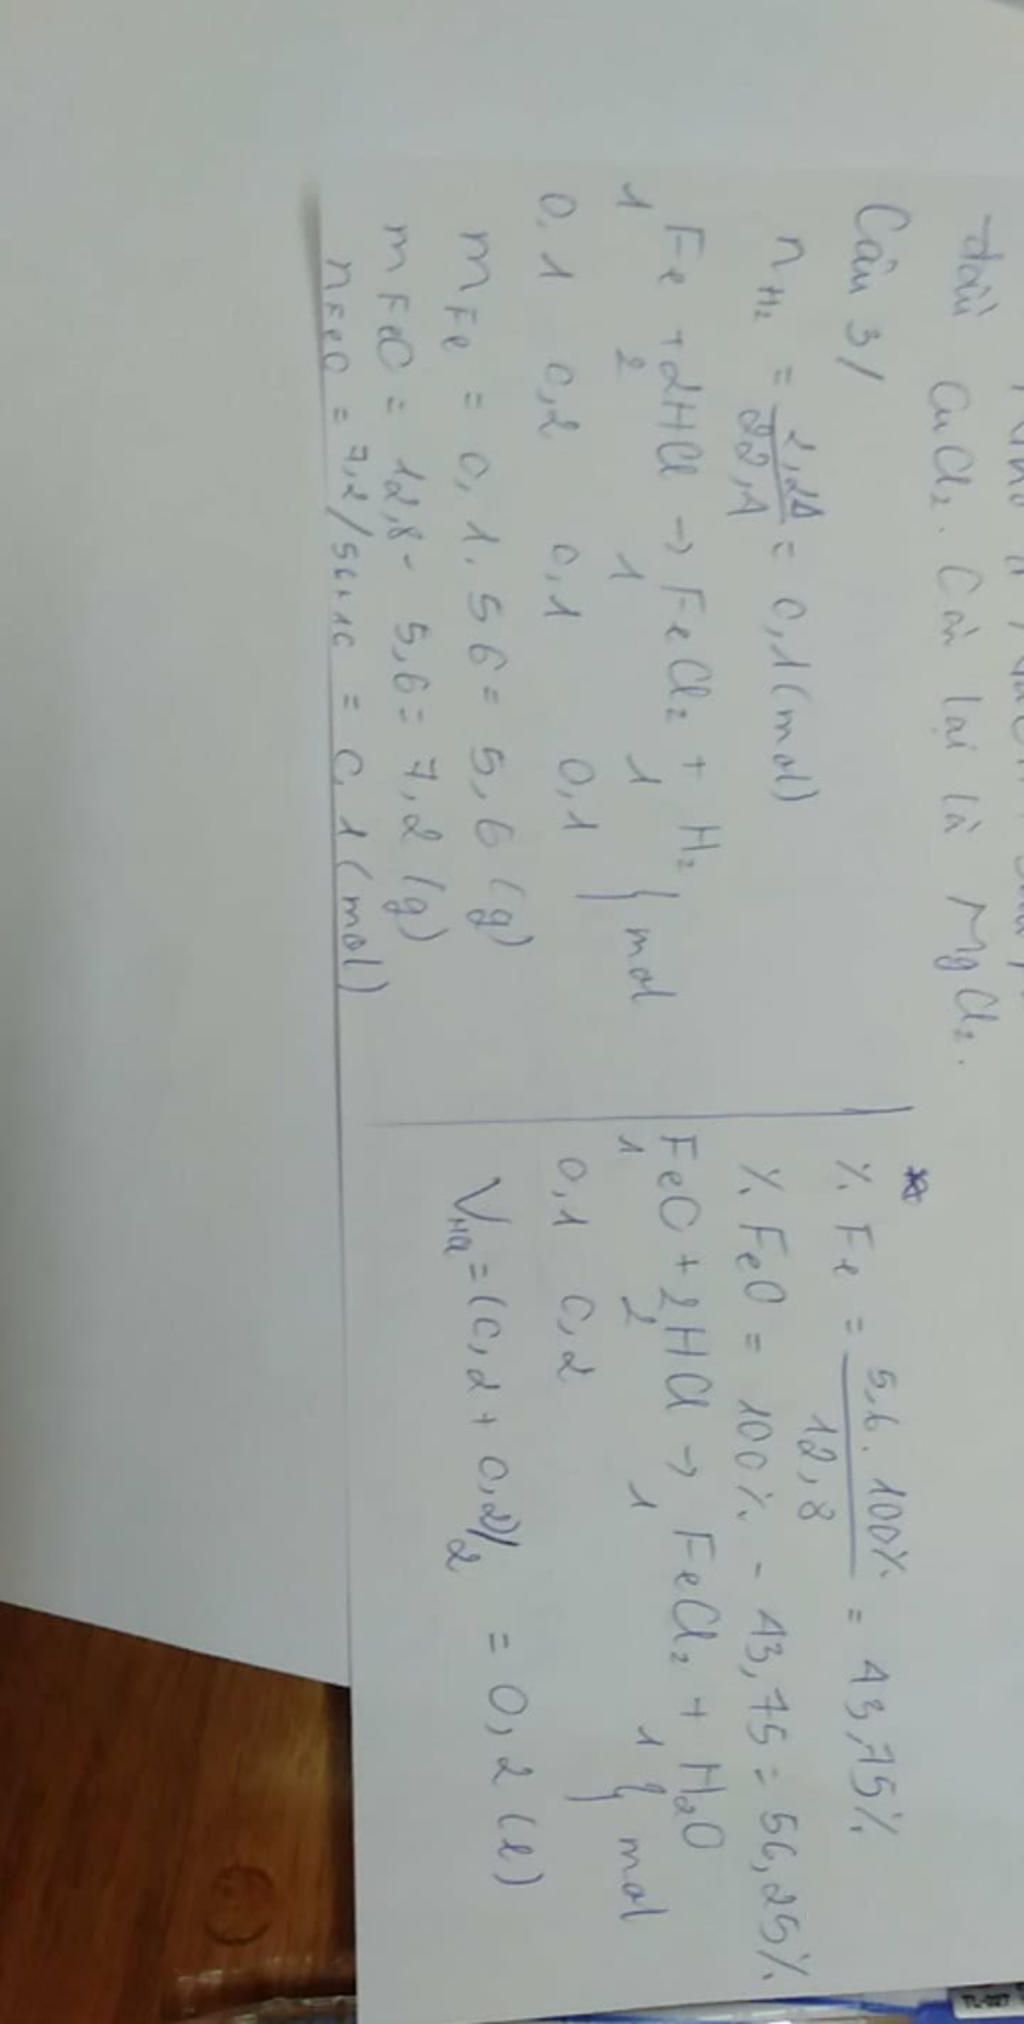 đầu CuCl₂. Còn lại là MgCl₂.
Câu 3/
n H₂ = 2,24/22,4 = 0,1 (mol)
Fe + 2HCl → FeCl₂ + H₂
1 2 1 1 } mol
0,1 0,2 0,1 0,1
m Fe = 0,1 . 56 = 5,6 (g)
m FeO = 12,8 - 5,6 = 7,2 (g)
n FeO = 7,2/56+16 = 0,1 (mol)
% Fe = 5,6 . 100% / 12,8 = 43,75%
% FeO = 100% - 43,75 = 56,25%
FeO + 2HCl → FeCl₂ + H₂O
1 2 1 1 } mol
0,1 0,2
V HCl = (0,2 + 0,2)/2 = 0,2 (l)
TL-027